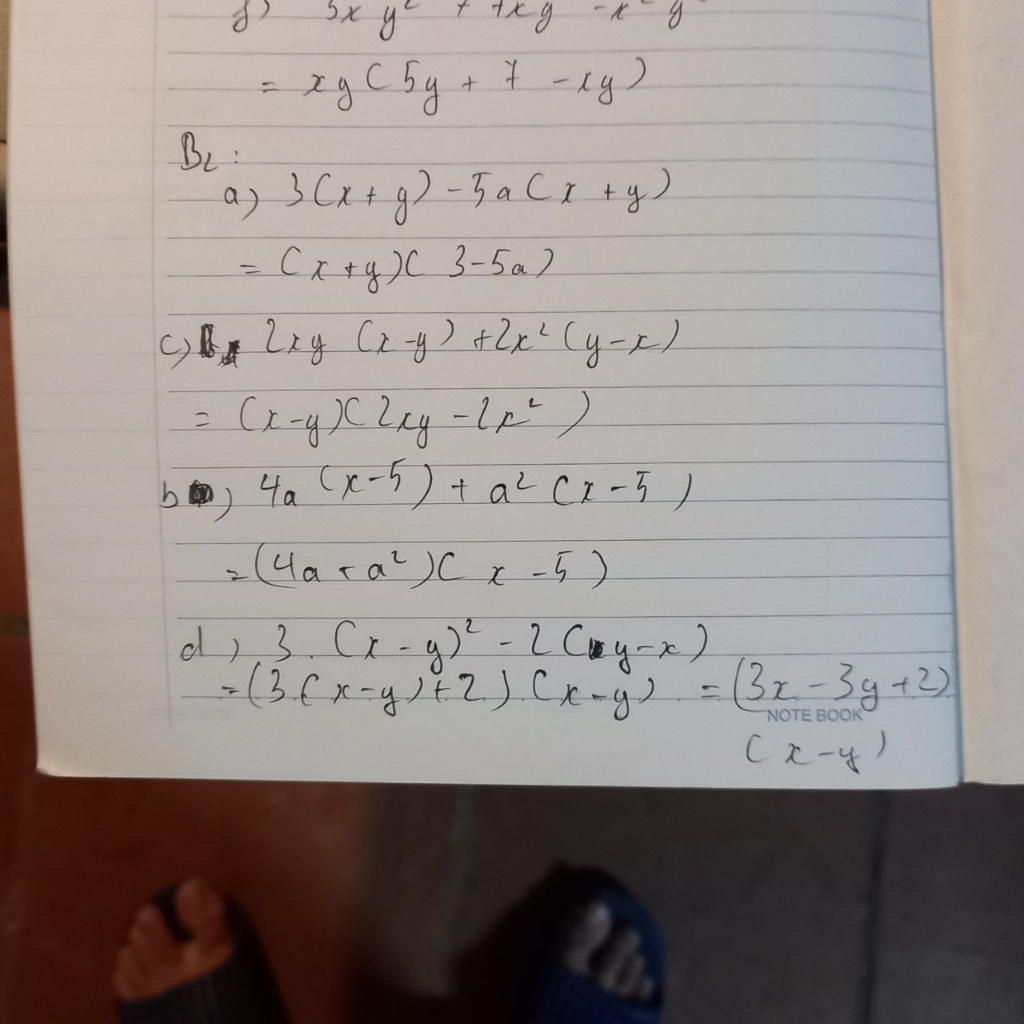 f) 5xy² + 7xy - x²y²
= xy(5y + 7 - xy)
B2:
a) 3(x+y) - 5a(x+y)
= (x+y)(3-5a)
c) 2xy (x-y) + 2x² (y-x)
= (x-y)(2xy - 2x²)
b) 4a (x-5) + a² (x-5)
= (4a + a²)(x-5)
d) 3.(x-y)² - 2(y-x)
= (3.(x-y)+2)(x-y) = (3x-3y+2)
NOTE BOOK
(x-y)